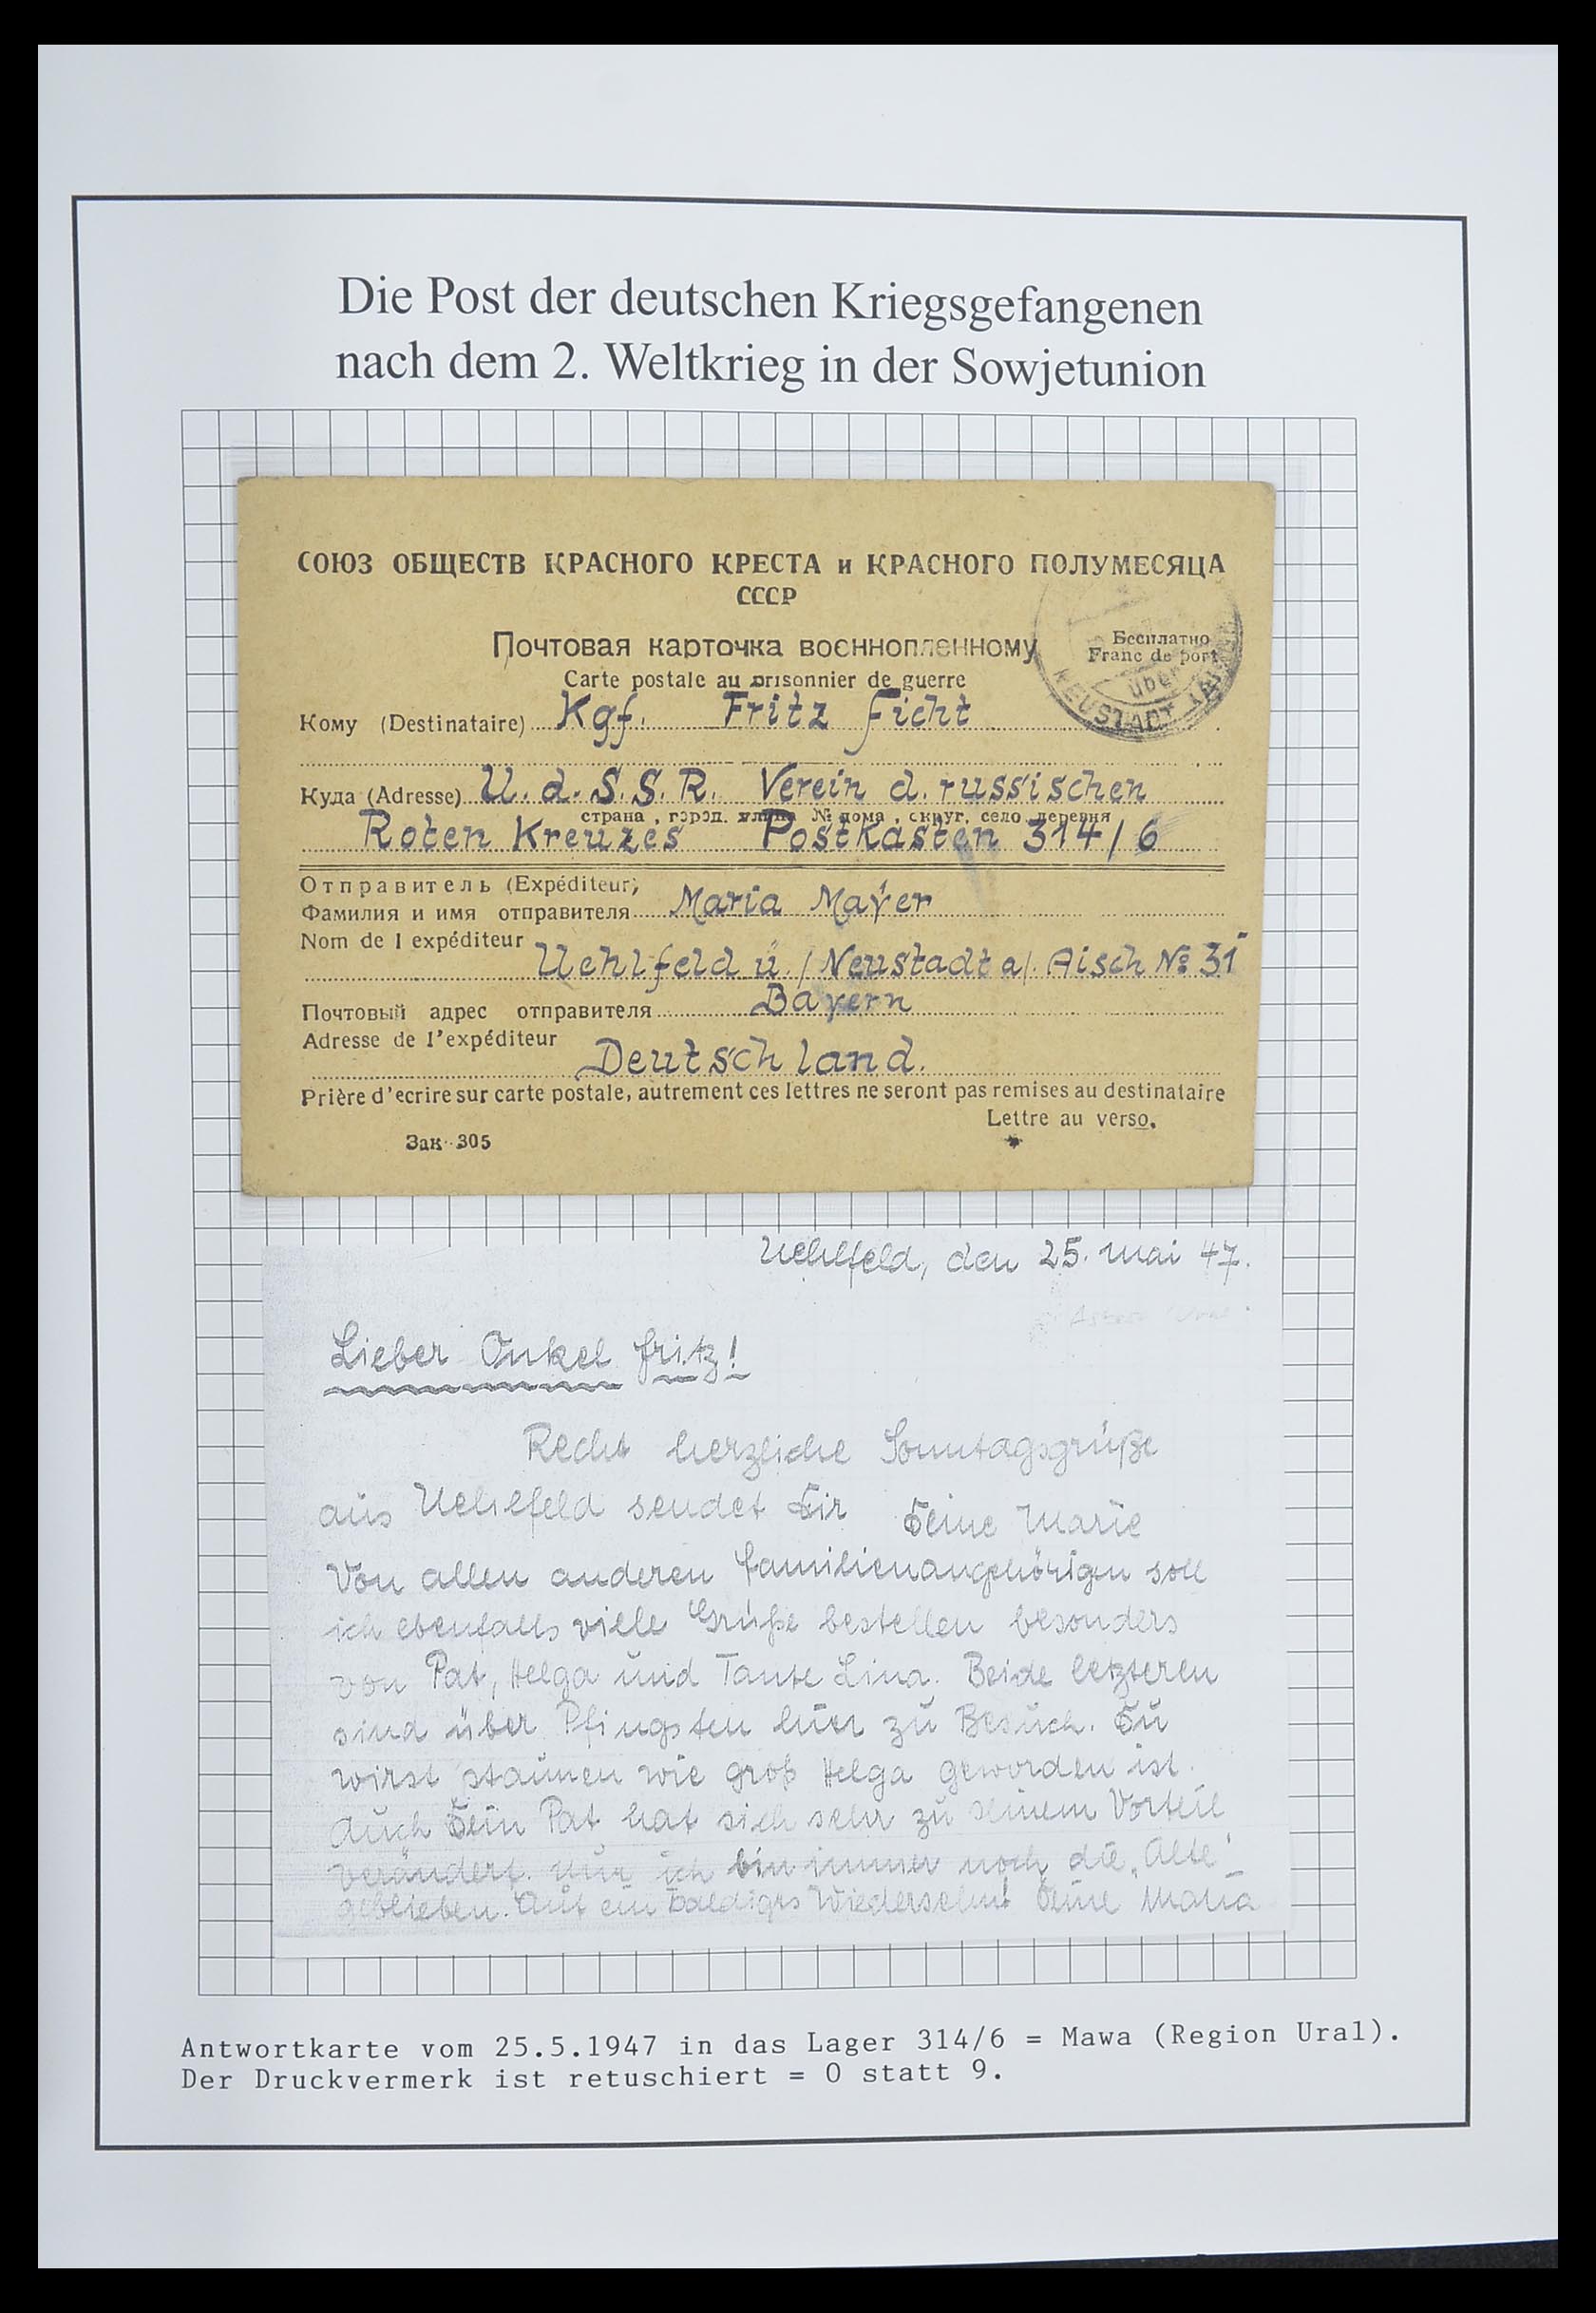 Die Post der deutschen Kriegsgefangenen
nach dem 2. Weltkrieg in der Sowjetunion
СОЮЗ ОБЩЕСТВ КРАСНОГО КРЕСТА и КРАСНОГО ПОЛУМЕСЯЦА
СССР
Почтовая карточка военнопленному
Бесплатно
Franc de port
über
NEUSTADT
Carte postale au prisonnier de guerre
Кому (Destinataire) Kgf. Fritz Ficht
Куда (Adresse) U. d. S. S. R. Verein d. russischen
страна, город, улица № дома, округ, село, деревня
Roten Kreuzes Postkasten 314/6
Отправитель (Expéditeur)
Фамилия и имя отправителя Maria Mayer
Nom de l expéditeur
Uehlfeld ü./Neustadt a/. Aisch № 31
Почтовый адрес отправителя Bayern
Adresse de l'expéditeur
Deutschland.
Prière d'ecrire sur carte postale, autrement ces lettres ne seront pas remises au destinataire
Lettre au verso.
Зак 305
Uehlfeld, den 25. Mai 47.
Lieber Onkel Fritz!
Recht herzliche Sonntagsgrüße
aus Uehlfeld sendet Dir Deine Marie
Von allen anderen Familienangehörigen soll
ich ebenfalls viele Grüße bestellen besonders
von Pat, Helga und Tante Lina. Beide letzteren
sind über Pfingsten hier zu Besuch. Du
wirst staunen wie groß Helga geworden ist.
Auch Dein Pat hat sich sehr zu seinem Vorteil
verändert. Nur ich bin immer noch die „Alte"
geblieben. Auf ein baldiges Wiedersehn! Deine Maria
Antwortkarte vom 25.5.1947 in das Lager 314/6 = Mawa (Region Ural).
Der Druckvermerk ist retuschiert = 0 statt 9.